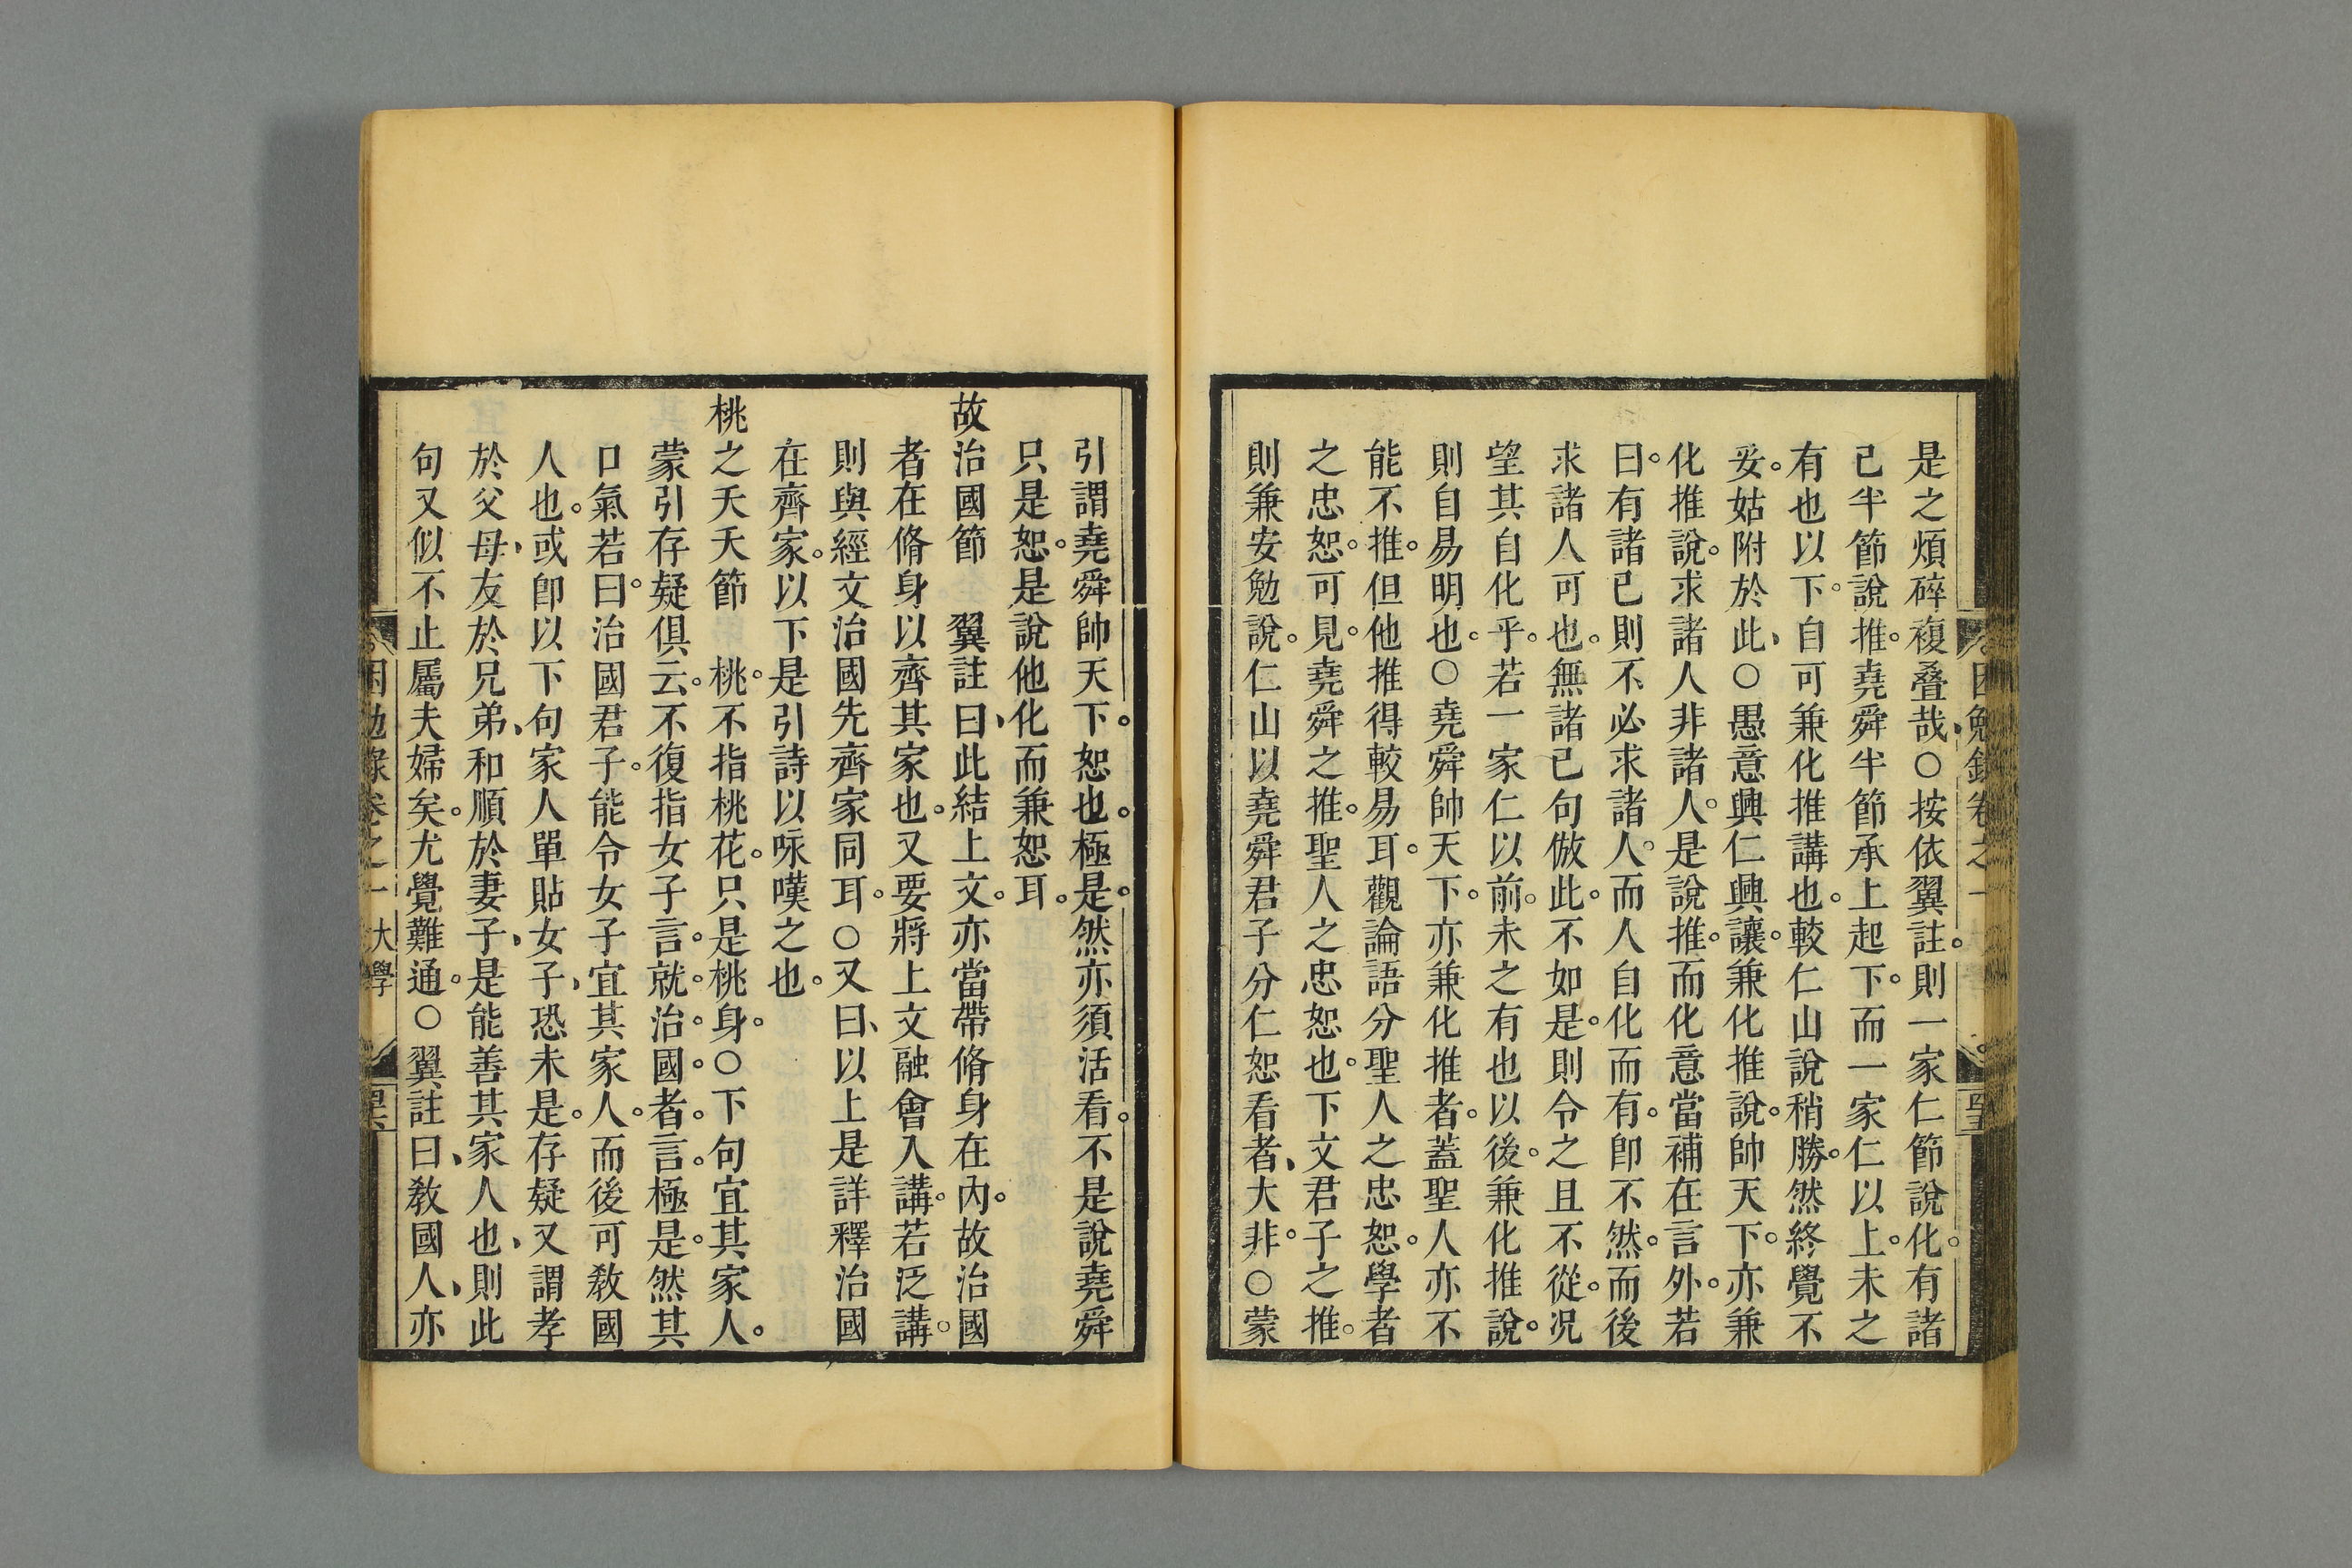 是之煩碎複叠哉○按依翼註則一家仁節說化有諸
己半節說推堯舜半節承上起下而一家仁以上未之
有也以下自可兼化推講也較仁山說稍勝然終覺不
妥姑附於此○愚意興仁興讓兼化推說帥天下亦兼
化推說求諸人非諸人是說推而化意當補在言外若
曰有諸已則不必求諸人而人自化而有卽不然而後
求諸人可也無諸已句倣此不如是則令之且不從况
望其自化乎若一家仁以前未之有也以後兼化推說
則自易明也○堯舜帥天下亦兼化推者蓋聖人亦不
能不推但他推得較易耳觀論語分聖人之忠恕學者
之忠恕可見堯舜之推聖人之忠恕也下文君子之推
則兼安勉說仁山以堯舜君子分仁恕看者大非○蒙
引謂堯舜帥天下恕也極是然亦須活看不是說堯舜
只是恕是說他化而兼恕耳
故治國節 翼註曰此結上文亦當帶脩身在內故治國
者在脩身以齊其家也又要將上文融會入講若泛講
則與經文治國先齊家同耳○又曰以上是詳釋治國
在齊家以下是引詩以咏嘆之也
桃之夭夭節 桃不指桃花只是桃身○下句宜其家人
蒙引存疑俱云不復指女子言就治國者言極是然其
口氣若曰治國君子能令女子宜其家人而後可敎國
人也或卽以下句家人單貼女子恐未是存疑又謂孝
於父母友於兄弟和順於妻子是能善其家人也則此
句又似不止屬夫婦矣尤覺難通○翼註曰敎國人亦
困勉錄卷之一 大學